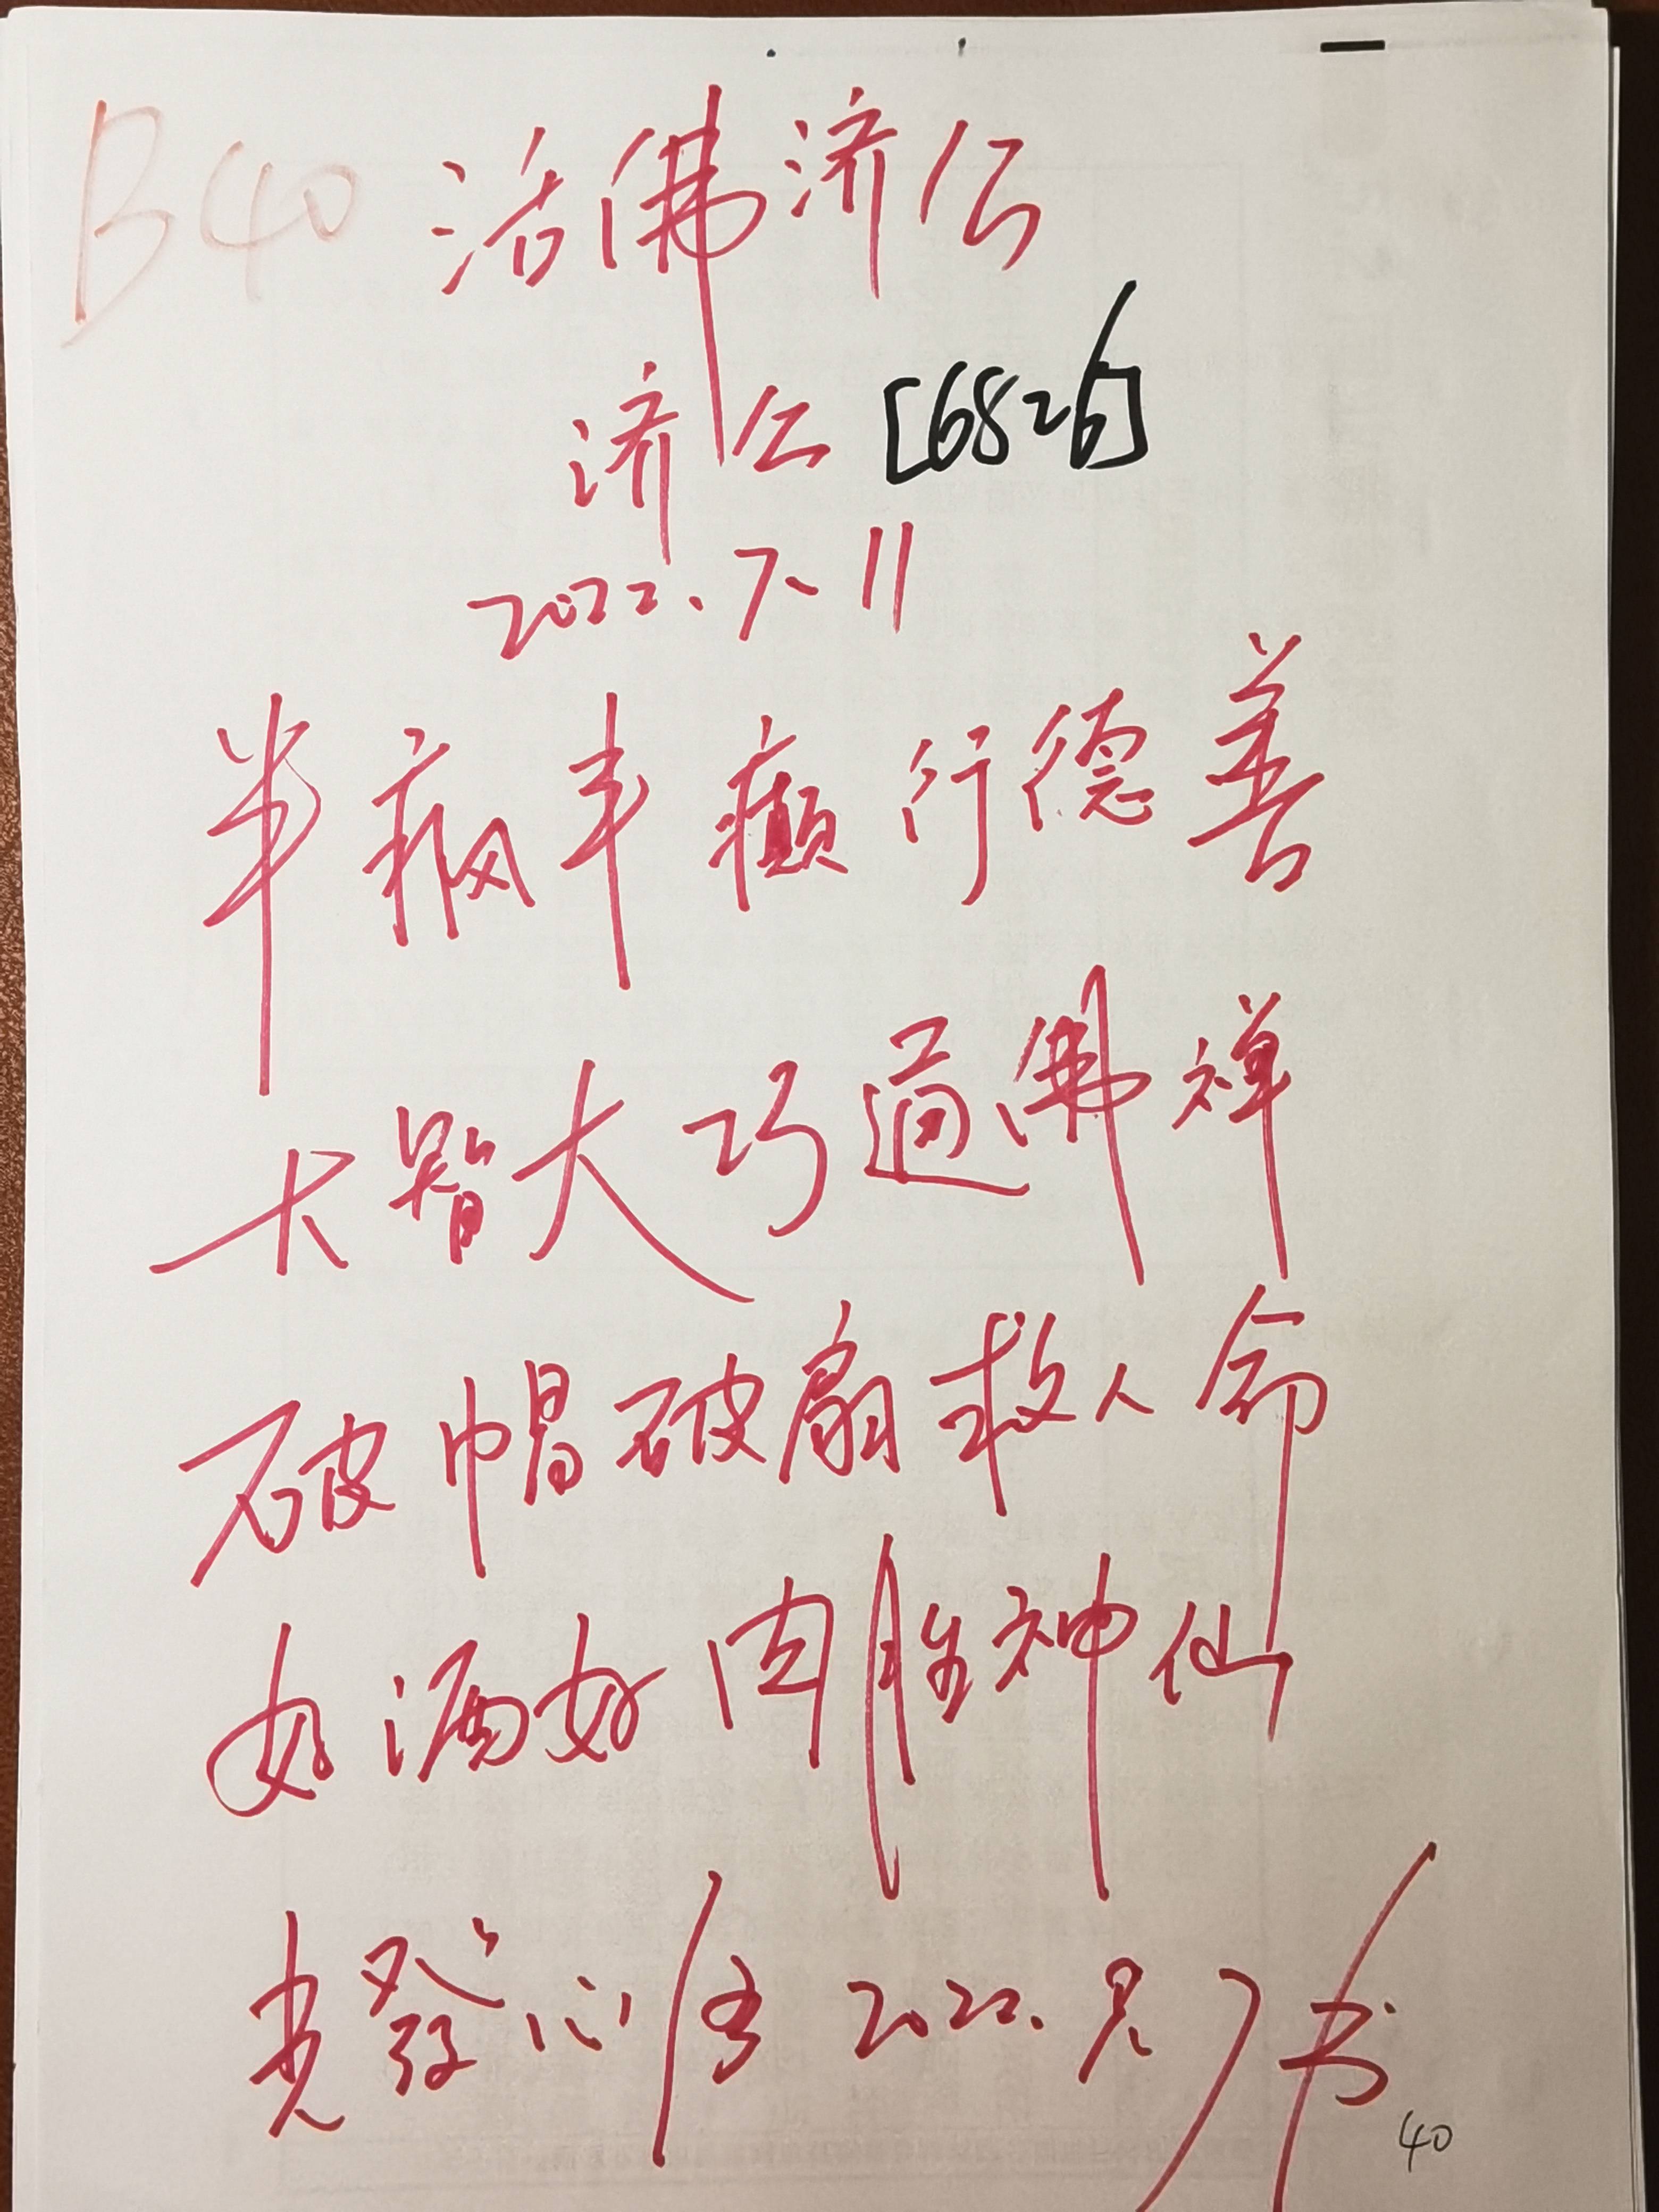 B40 活佛济公
济公 [6826]
2022.7.11
半疯半癫行德善
大智大巧通佛禅
破帽破扇救人命
好酒好肉胜神仙
党發心 2022.8.7书
40